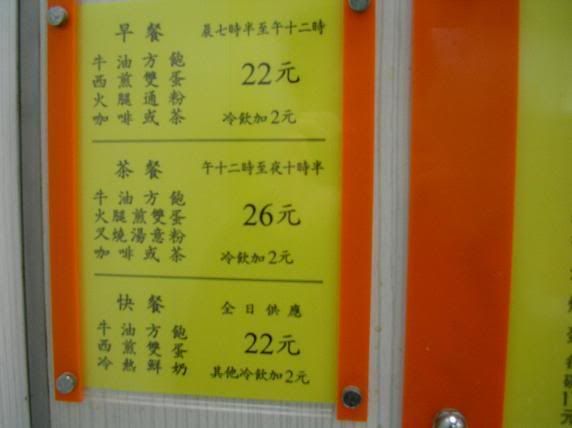 早餐 晨七時半至午十二時
牛油方飽
西煎雙蛋
火腿通粉
咖啡或茶
22元
冷飲加2元
茶餐 午十二時至夜十時半
牛油方飽
火腿煎雙蛋
叉燒湯意粉
咖啡或茶
26元
冷飲加2元
快餐 全日供應
牛油方飽
西煎雙蛋
冷熱鮮奶
22元
其他冷飲加2元